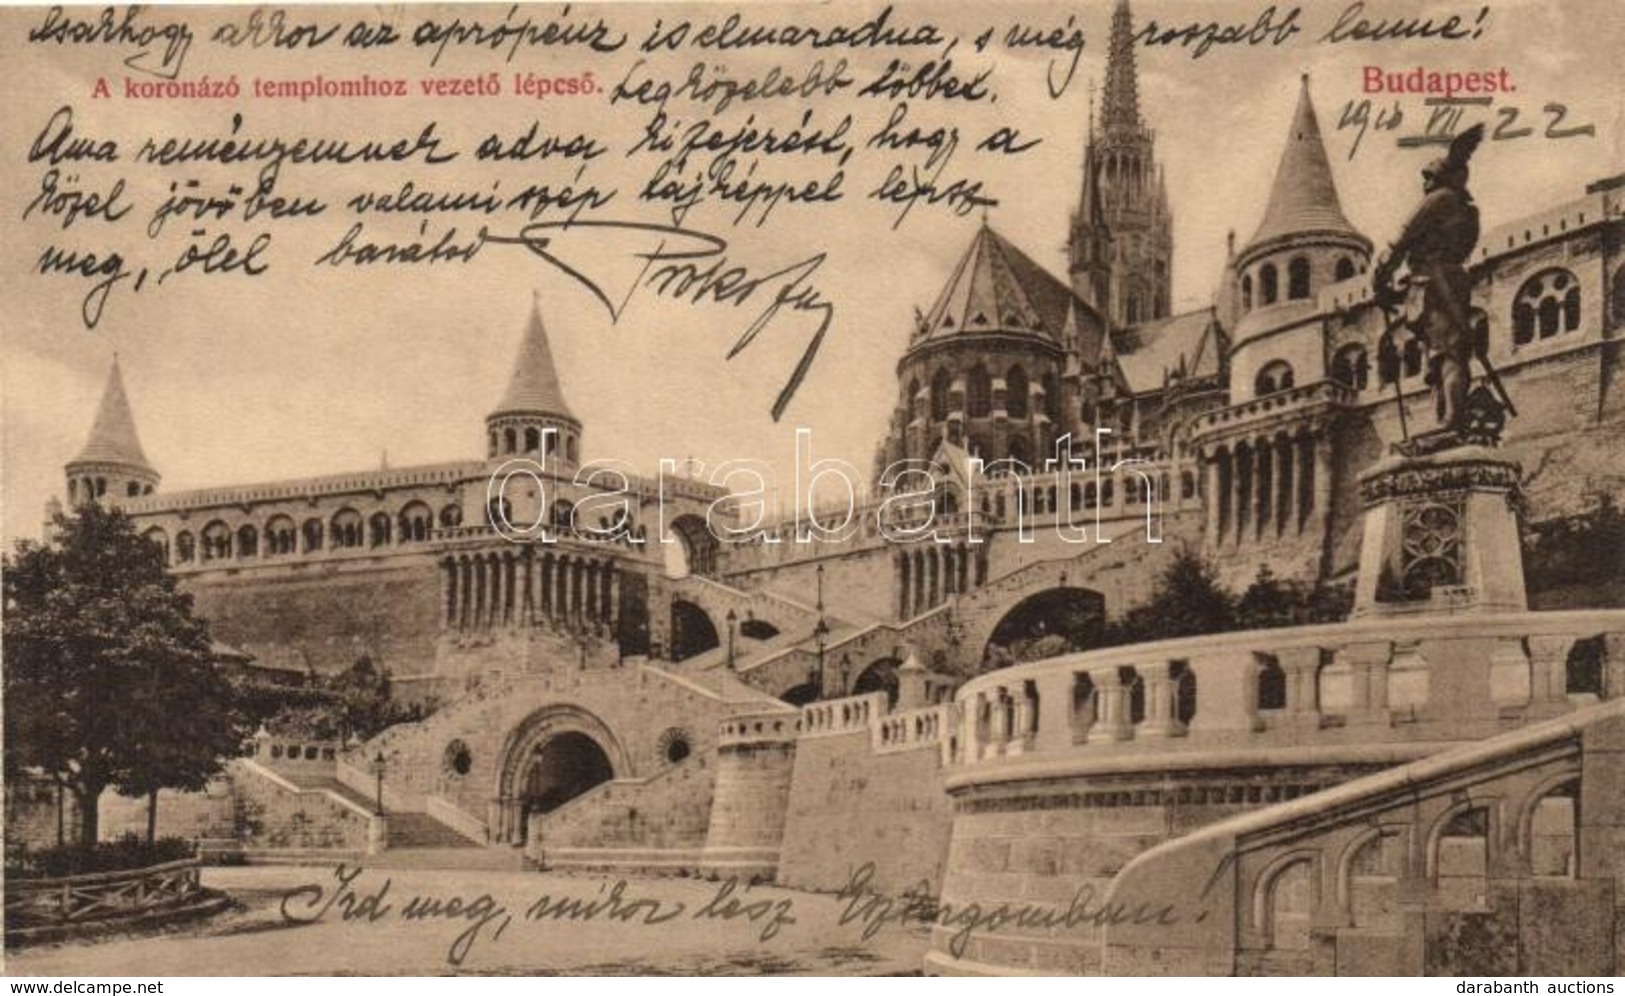 csakhogy akkor az aprópénz is elmaradna, s még rosszabb lenne!
A koronázó templomhoz vezető lépcső. Legközelebb többet. Budapest.
VII 22
Ama reményemnek adva kifejezést, hogy a
közel jövőben valami szép tájképpel lepsz
meg, ölel barátod
darabanth
Ird meg, mikor lész Esztergomban!
www.darabanth.com
darabanth auctions